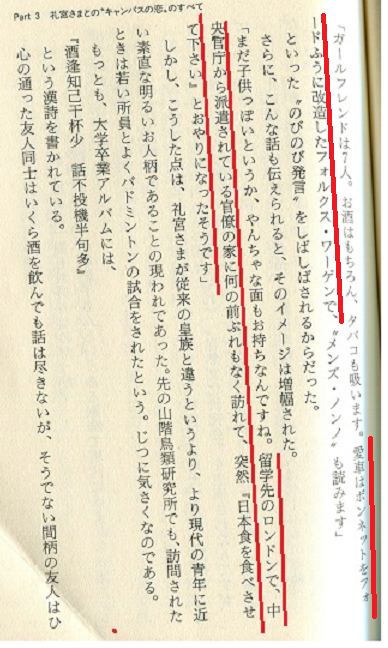 Part 3 礼宮さまとの“キャンパスの恋”のすべて
「ガールフレンドは7人。お酒はもちろん、タバコも吸います。愛車はボンネットをフォ
ードふうに改造したフォルクス・ワーゲンで、〝メンズ・ノンノ〟も読みます」
といった〝のびのび発言〟をしばしばされるからだった。
さらに、こんな話も伝えられると、そのイメージは増幅された。
「まだ子供っぽいというか、やんちゃな面もお持ちなんですね。留学先のロンドンで、中
央官庁から派遣されている官僚の家に何の前ぶれもなく訪れて、突然『日本食を食べさせ
て下さい』とおやりになったそうです」
しかし、こうした点は、礼宮さまが従来の皇族と違うというより、より現代の青年に近
い素直な明るいお人柄であることの現われであった。先の山階鳥類研究所でも、訪問された
ときは若い所員とよくバドミントンの試合をされたという。じつに気さくなのである。
もっとも、大学卒業アルバムには、
『酒逢知己千杯少　話不投機半句多』
という漢詩を書かれている。
心の通った友人同士はいくら酒を飲んでも話は尽きないが、そうでない間柄の友人はひ